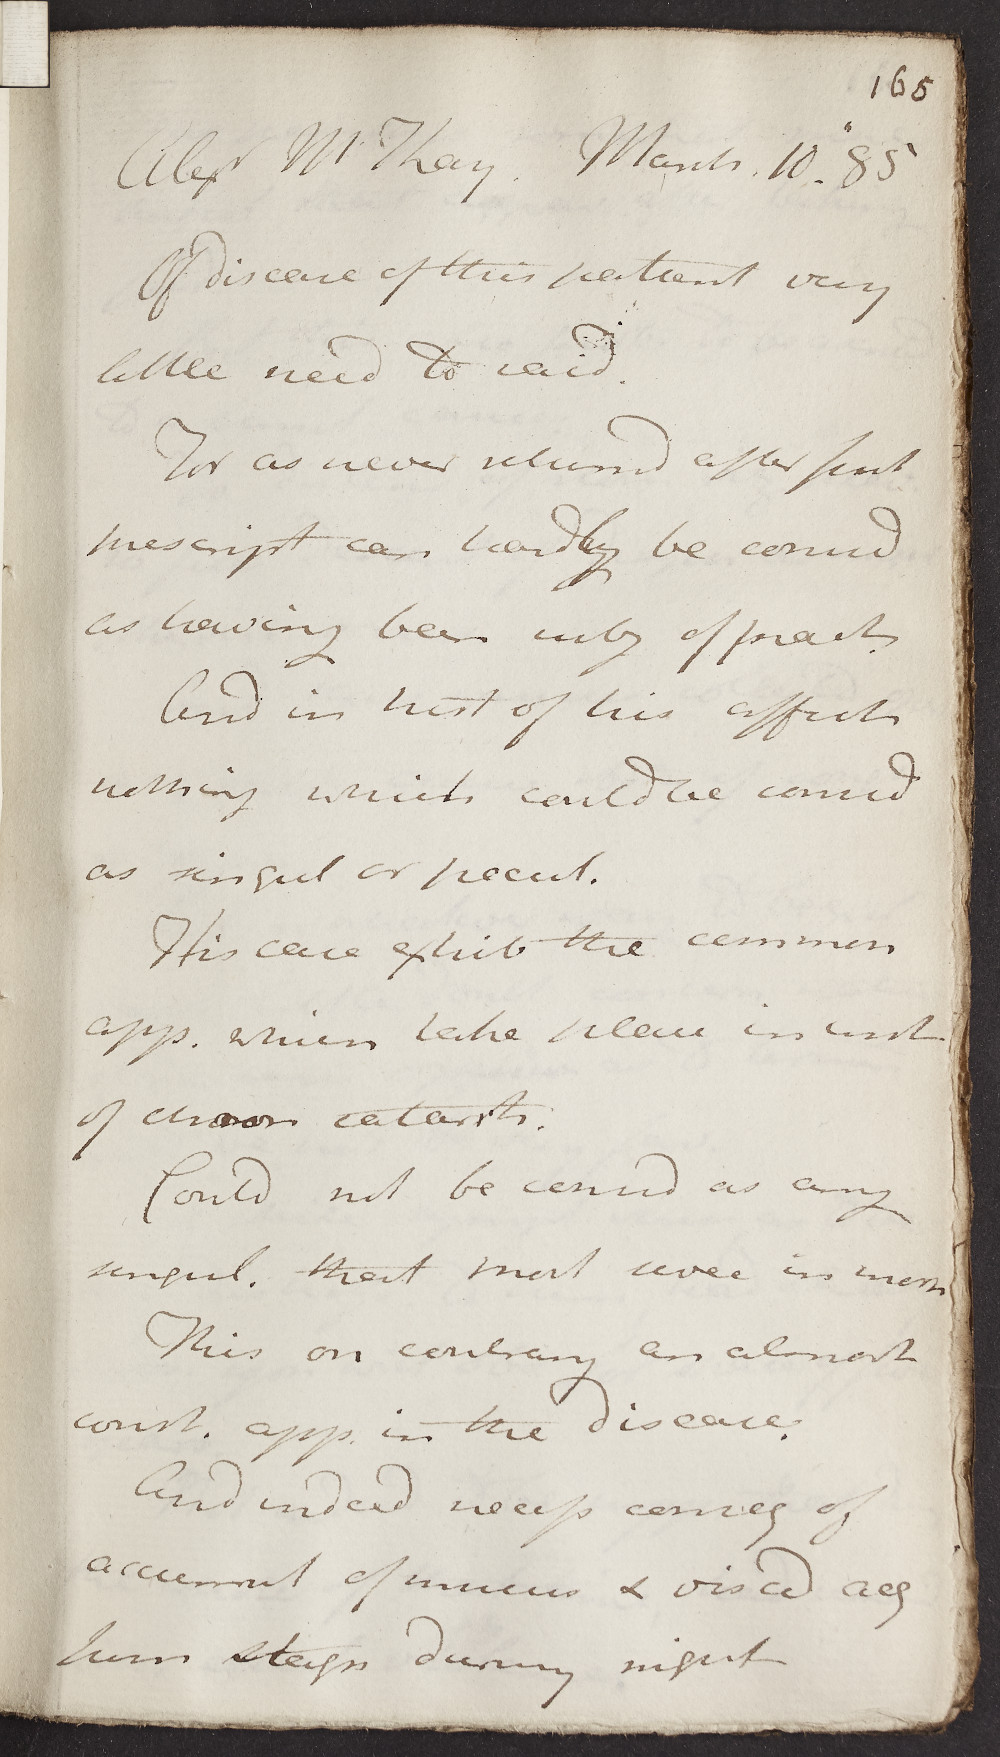 165
Alexr McKay. March. 10. 85
Of disease of this patient very
little need to said.
For as never returnd after first
prescript can hardly be consid
as having been subj of pract.
And in hist of his affect
nothing which could be consid
as singul or pecul.
His case exhib the common
app. which take place in inst
of chron catarrh.
Could not be consid as any
singul. that most severe in morn
This on contrary an almost
const. app. in the disease.
And indeed necess conseq of
accumul of mucus & viscid acq
from stagn during night